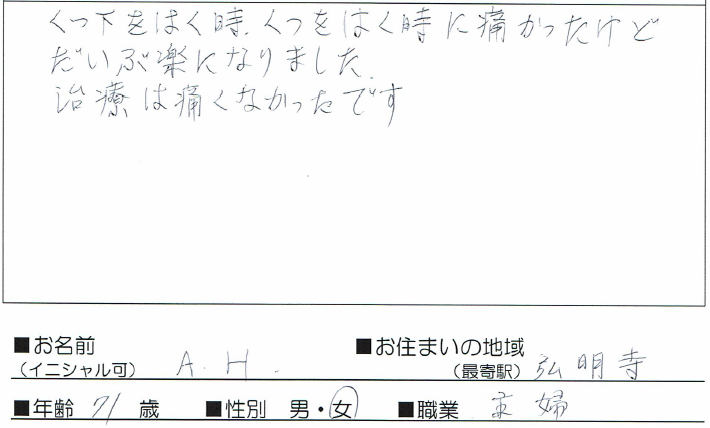 くつ下をはく時、くつをはく時に痛かったけど
だいぶ楽になりました。
治療は痛くなかったです
■お名前 ■お住まいの地域
（イニシャル可） A.H. （最寄駅） 弘明寺
■年齢 71 歳 ■性別 男・女 ■職業 主婦